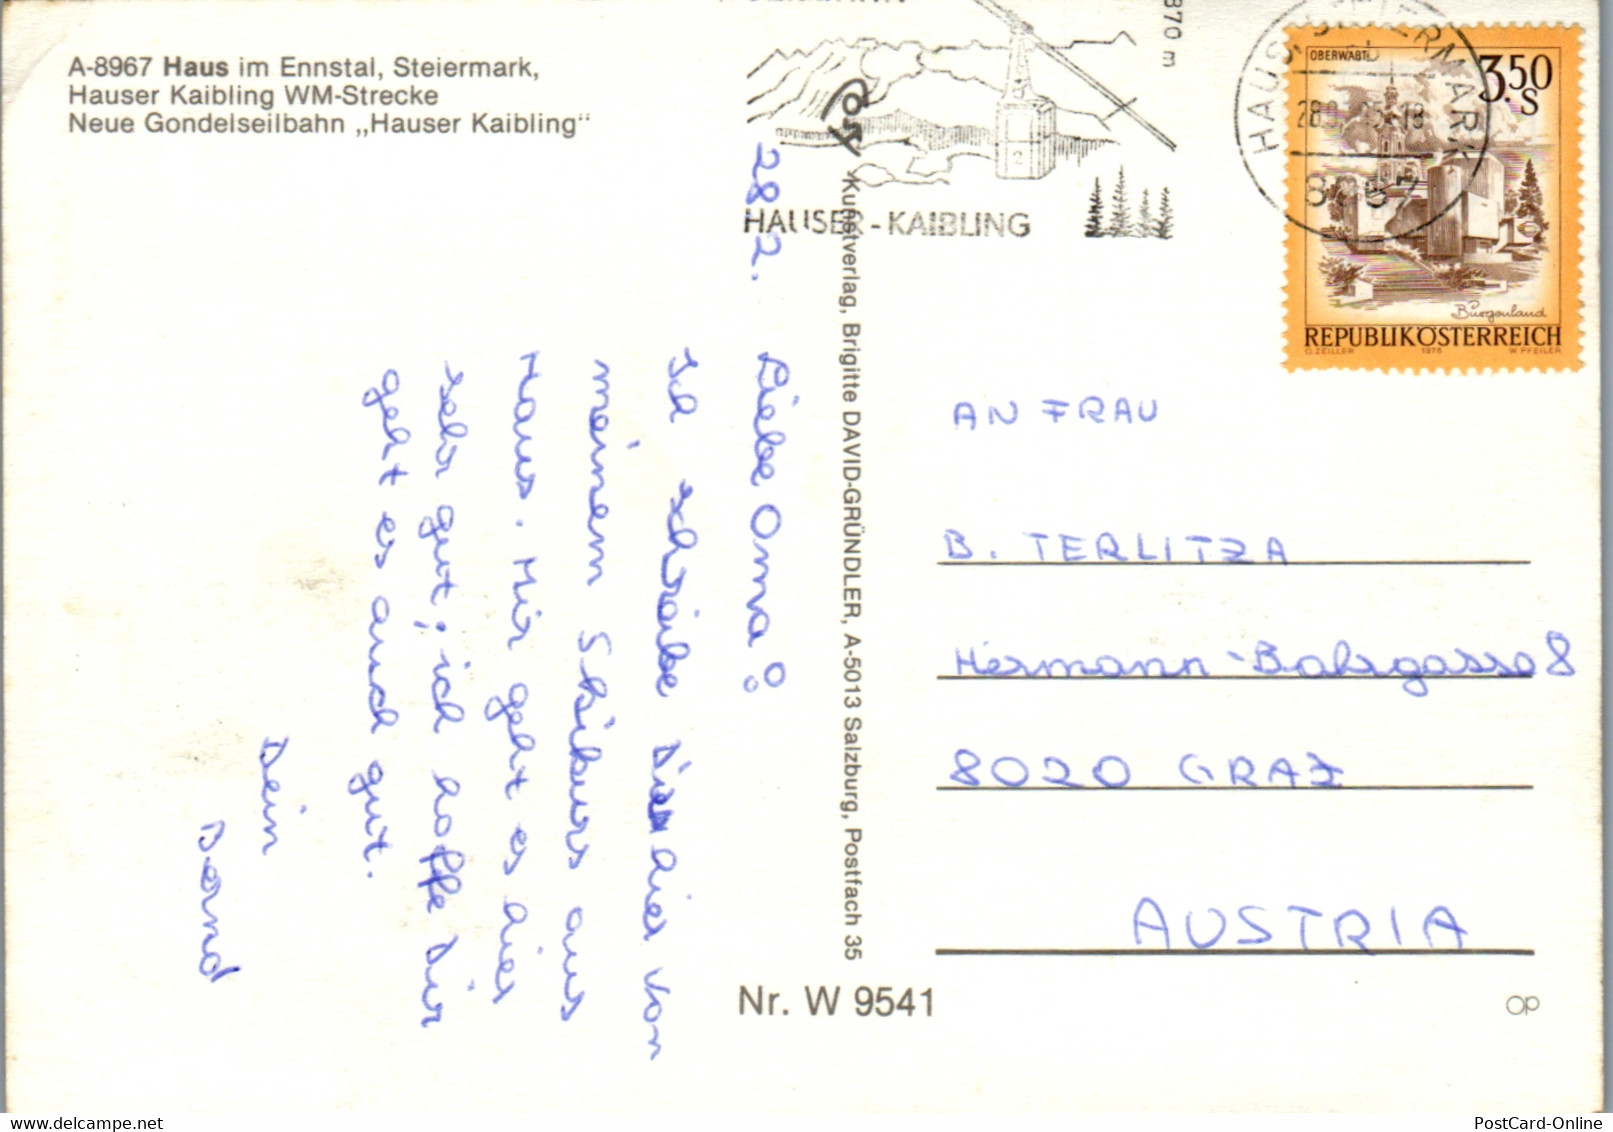 A-8967 Haus im Ennstal, Steiermark,
Hauser Kaibling WM-Strecke
Neue Gondelseilbahn „Hauser Kaibling"
870 m
HAUSER-KAIBLING
HAUS, STEIERMARK
8967
OBERWART
3.50
S
Burgenland
REPUBLIK ÖSTERREICH
O. ZEILLER 1976 W. PFEILER
Post
28.2.
Liebe Oma!
Ich schreibe Dir hier von
meinem Skikurs aus
Haus. Mir geht es hier
sehr gut; ich hoffe Dir
geht es auch gut.
Dein
Bernd
Kunstverlag, Brigitte DAVID-GRÜNDLER, A-5013 Salzburg, Postfach 35
AN FRAU
B. TERLITZA
Hermann-Bahrgasse 8
8020 GRAZ
AUSTRIA
Nr. W 9541
OP
PostCard-Online
www.delcampe.net